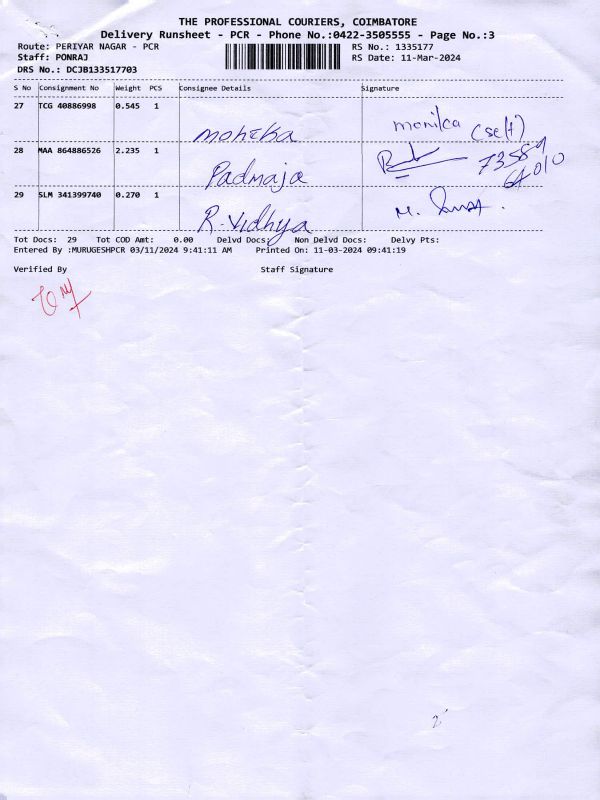 THE PROFESSIONAL COURIERS, COIMBATORE
Delivery Runsheet - PCR - Phone No.:0422-3505555 - Page No.:3
Route: PERIYAR NAGAR - PCR RS No.: 1335177
Staff: PONRAJ RS Date: 11-Mar-2024
DRS No.: DCJB133517703
S No Consignment No Weight PCS Consignee Details Signature
27 TCG 40886998 0.545 1
monika monika (self)
28 MAA 864886526 2.235 1
Padmaja 73589
64010
29 SLM 341399740 0.270 1
R.Vidhya M.
Tot Docs: 29 Tot COD Amt: 0.00 Delvd Docs: Non Delvd Docs: Delvy Pts:
Entered By :MURUGESHPCR 03/11/2024 9:41:11 AM Printed On: 11-03-2024 09:41:19
Verified By Staff Signature